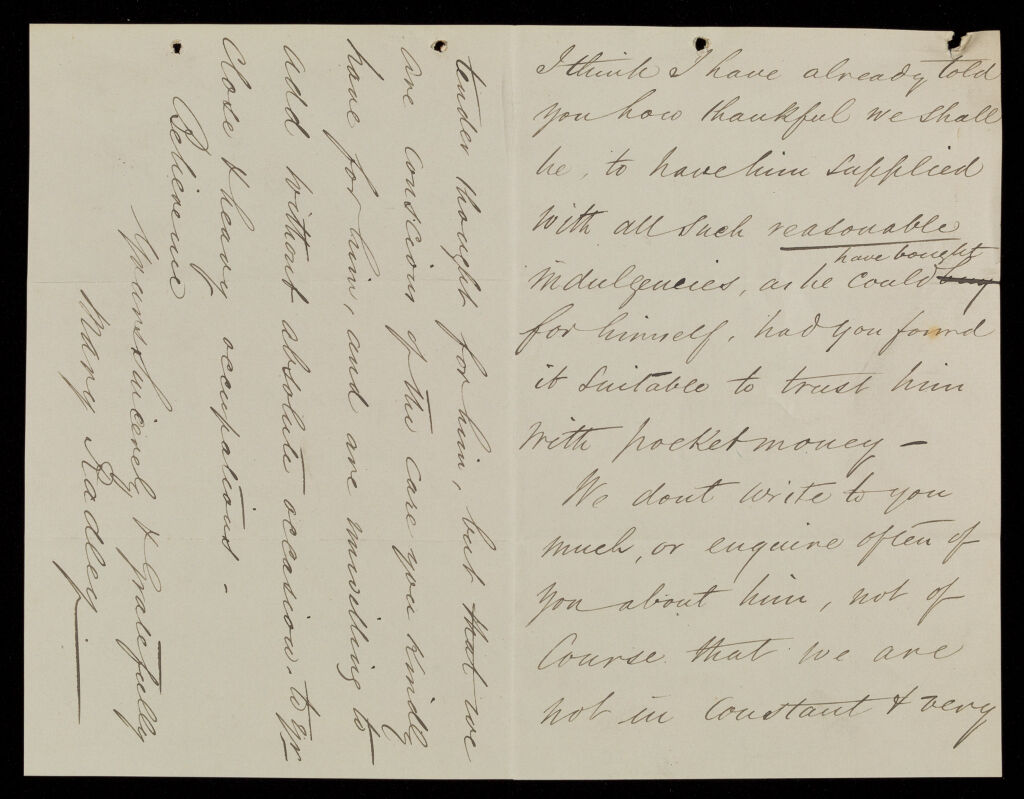 I think I have already told
you how thankful we shall
be, to have him supplied
with all such reasonable
have bought
indulgencies, as he could buy
for himself, had you found
it suitable to trust him
with pocket money –
We dont write to you
much, or enquire often of
you about him, not of
Course that we are
not in Constant & very
tender thought for him, but that we
are conscious of the care you kindly
have for him, and are unwilling to
add without absolute occasion, to yr
close & heavy occupations –
Believe me
Yours sincerely & Gratefully
Mary Radley.